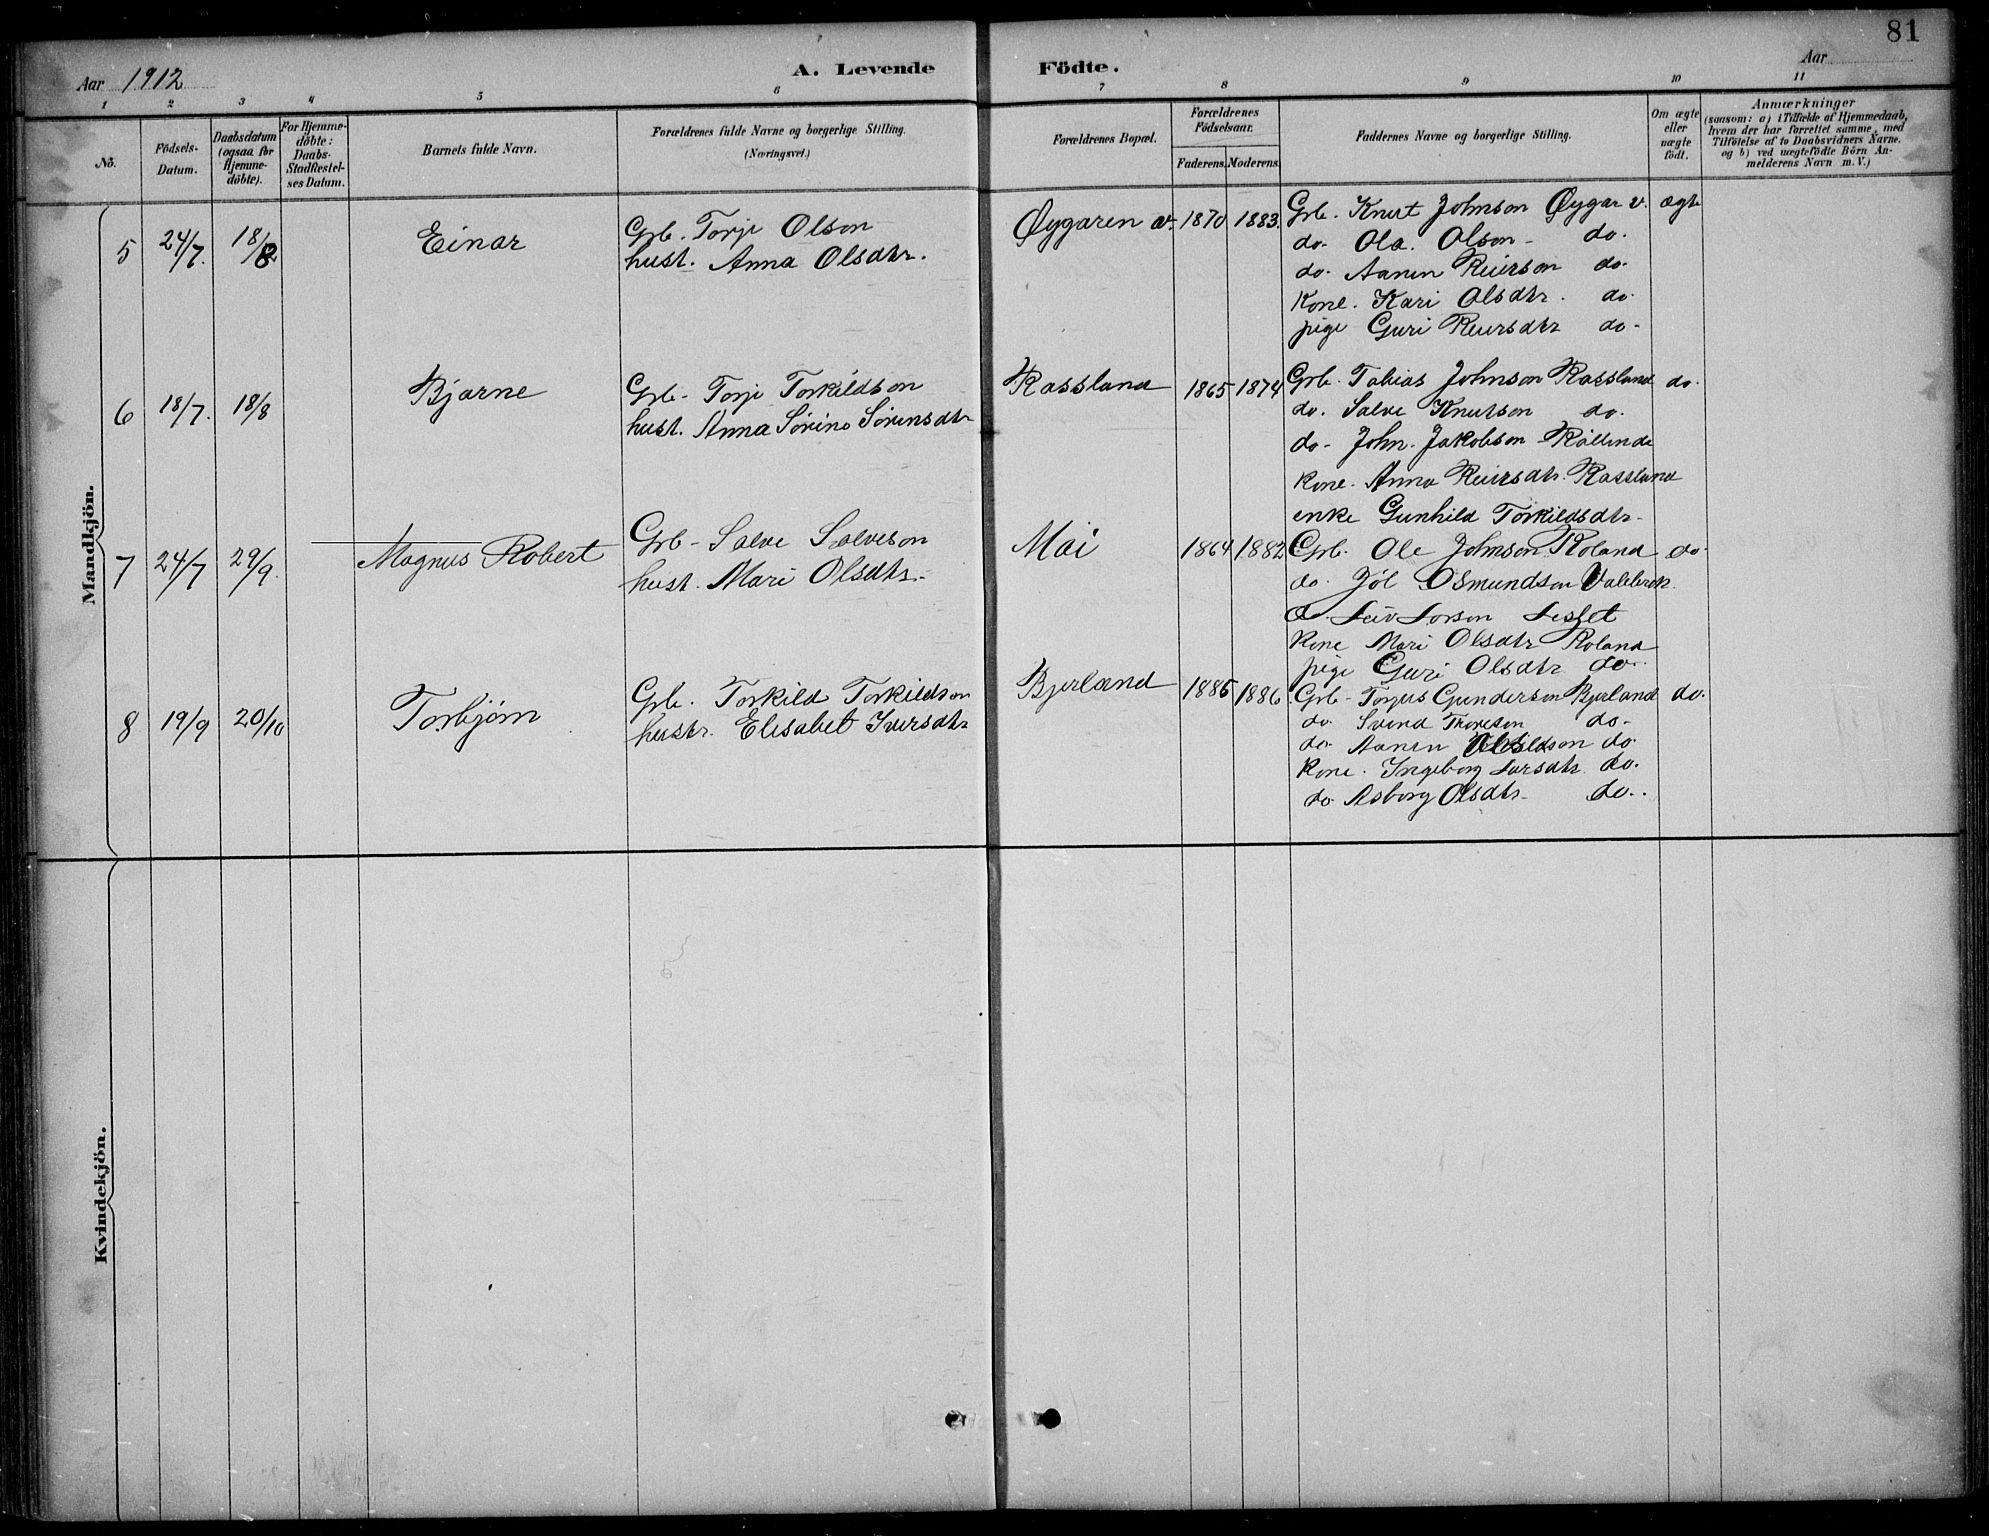 81
Aar 1912
A. Levende Födte.
Aar
1 2 3 4 5 6 7 8 9 10 11
No.
Födsels-Datum.
Daabsdatum (ogsaa for Hjemme-döbte).
For Hjemme-döbte: Daabs-Stadfæstel-ses Datum.
Barnets fulde Navn.
Forældrenes fulde Navne og borgerlige Stilling.
(Næringsvei.)
Forældrenes Bopæl.
Forældrenes Födselsaar.
Faderens. Moderens.
Faddernes Navne og borgerlige Stilling.
Om ægte eller uægte födt.
Anmærkninger
(saasom: a) i Tilfælde af Hjemmedaab, hvem der har forrettet samme, med Tilföielse af to Daabsvidners Navne. og b) ved uægtefödte Börn An-melderens Navn m. V.)
Mandkjön.
5 24/7. 18/8 Einar
Grb. Torje Olson
hust. Anna Olsdtr.
Øygaren v. 1870 1883.
Grb. Knut Johnson Øygar v. ægte
do. Ola. Olson - do.
do. Aanen Reierson do.
Kone. Kari Olsdtr. do.
pige Guri Reiersdtr do.
6 18/7. 18/8 Bjarne
Grb. Torje Torkildson
hust. Anna Sørine Sørensdtr
Rassland 1865 1874
Grb. Tobias Johnson Rassland do.
do. Salve Knutson do.
do. John. Jakobson
Kone. Anna Reiersdtr. Rassland
enke Gunhild Torkildsdtr.
7 24/7 29/9. Magnus Robert
Grb. Salve Salveson
hust. Mari Olsdtr.
Mai 1864 1882
Grb. Ole Johnson Roland do.
do. Jøl Osmundson
do.
Kone Mari Olsdtr Roland
pige Guri Olsdtr do.
8 19/9 20/10 Torbjørn
Grb. Torkild Torkildson
hustr. Elisabet Iversdtr
Bjerland 1885 1886
Grb. Torjus Gunderson Bjerland do.
do. Svend Thoreson do.
do. Aanen do.
Kone. Ingeborg Larsdtr. do.
do. Asborg Olsdtr. do.
Kvindekjön.